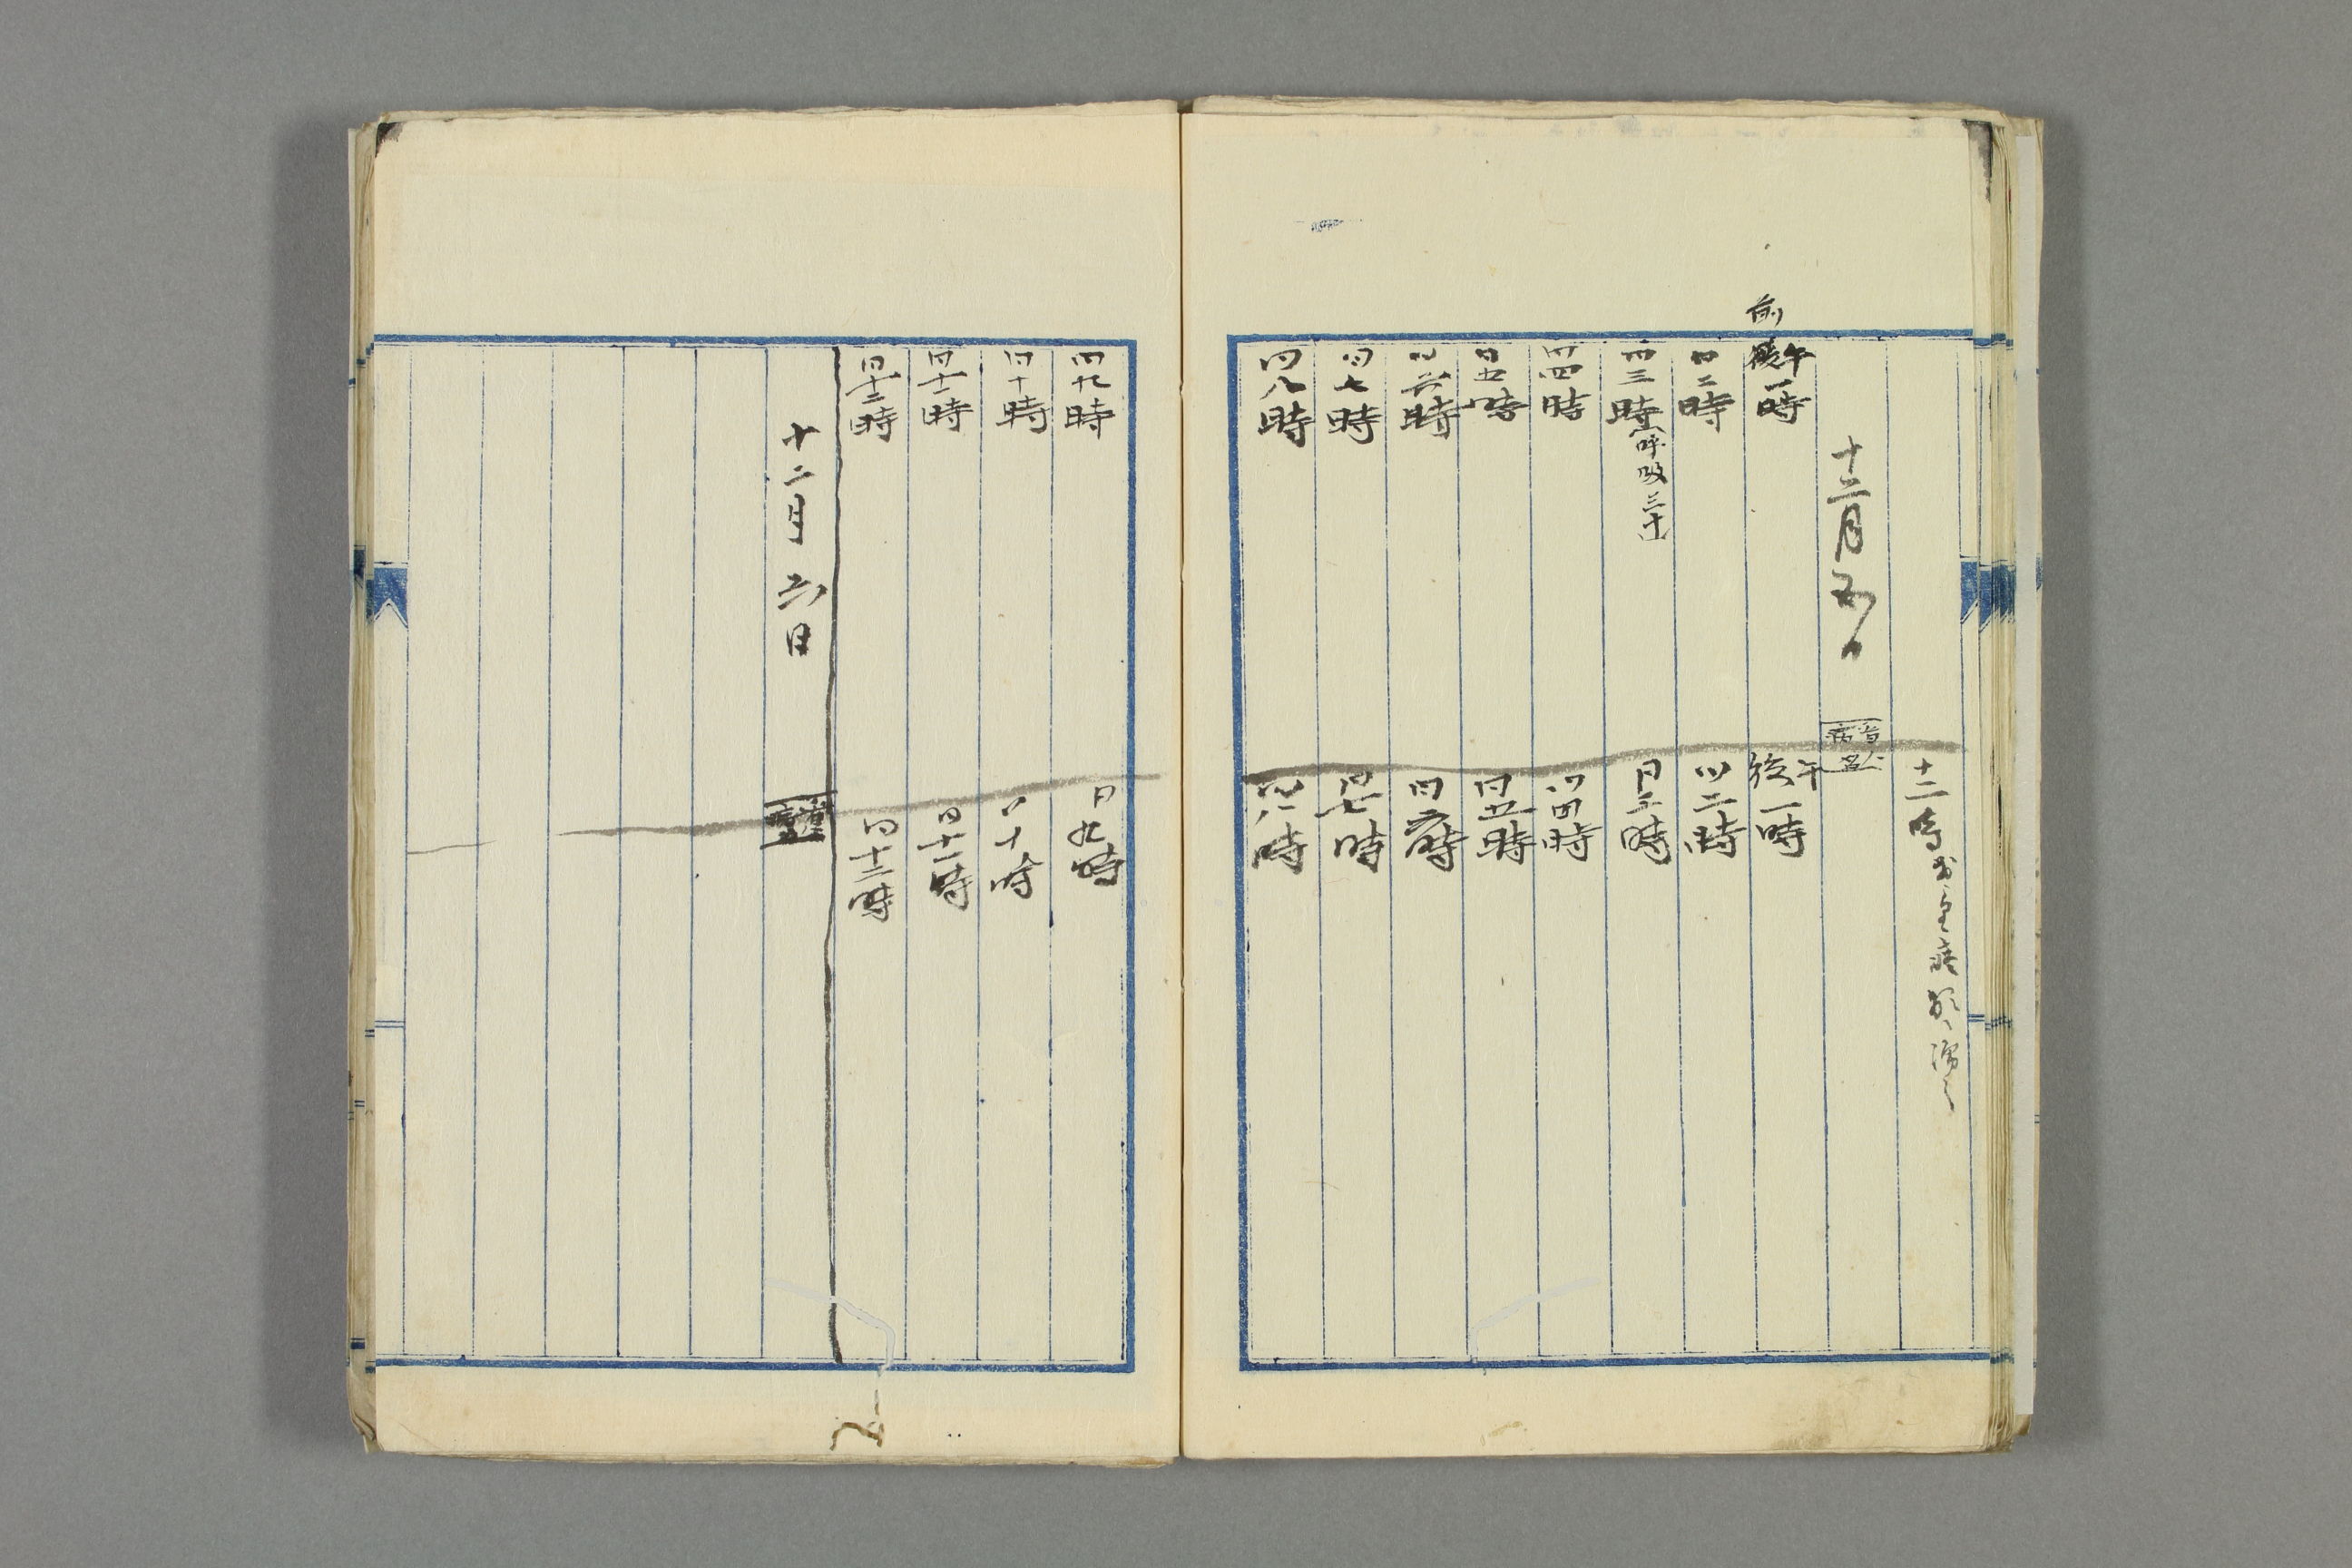 十二時
十二月五日
前
午後一時
午後一時
同二時
同二時
同三時 呼吸三十
同三時
同四時
同四時
同五時
同五時
同六時
同六時
同七時
同七時
同八時
同八時
同九時
同九時
同十時
同十時
同十一時
同十一時
同十二時
同十二時
十二月六日